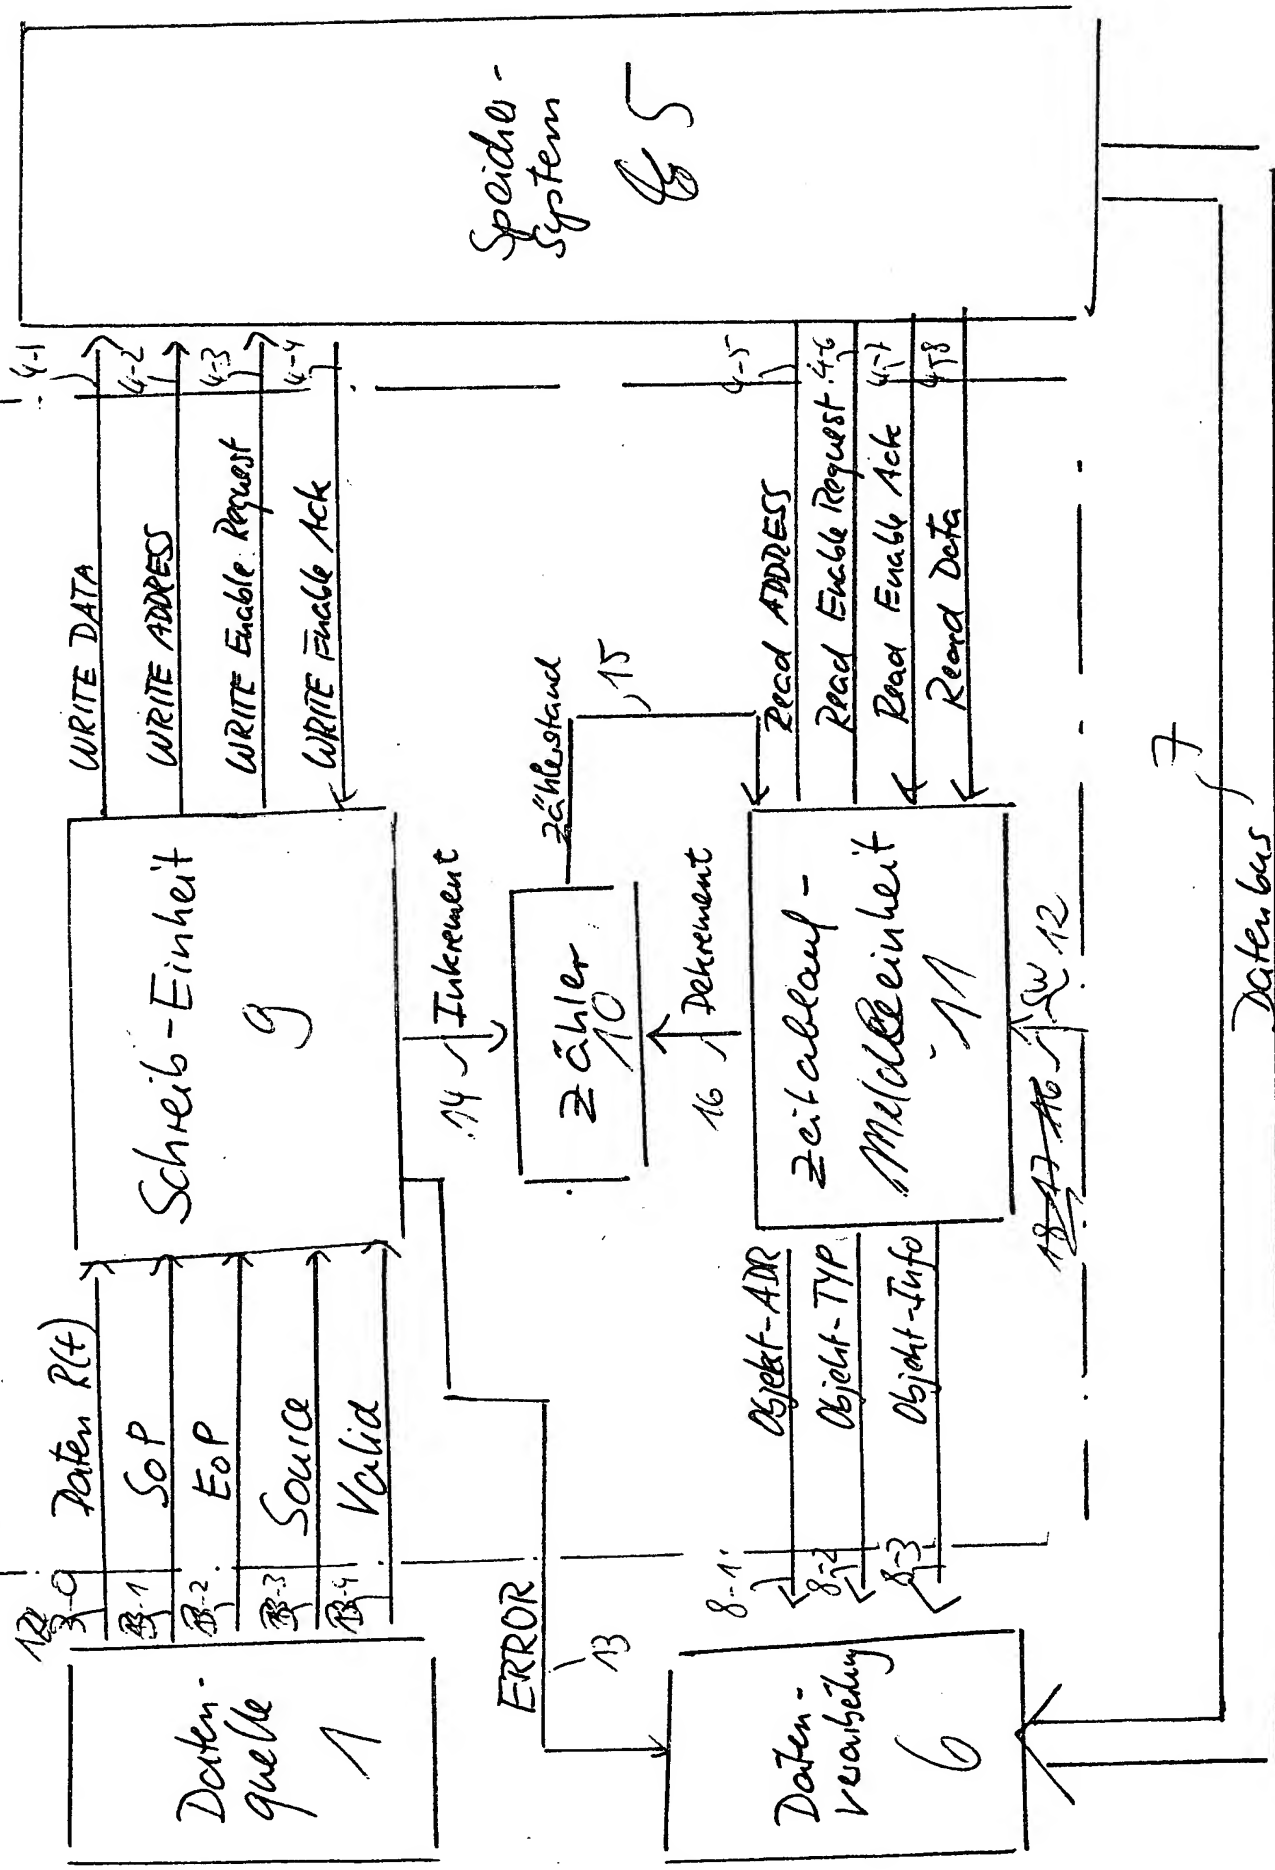 Daten-
quelle
1
3-0
Daten R(t)
SoP
EoP
Source
Valid
Schreib-Einheit
9
WRITE DATA
4-1
WRITE ADDRESS
4-2
WRITE Enable Request
4-3
WRITE Enable Ack
4-4
Speicher-
System
5
ERROR
13
14
Inkrement
Zähler
10
Zählerstand
15
16
Dekrement
Daten-
verarbeitung
6
8-1
Objekt-ADR
8-2
Objekt-TYP
8-3
Objekt-Info
Zeitablauf-
Meldeeinheit
11
Read ADDRESS
4-5
Read Enable Request
4-6
Read Enable Ack
4-7
Read Data
4-8
18 17 16
SW 12
7
Datenbus